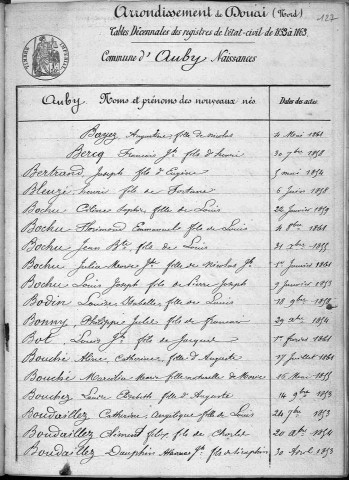 127
Arrondissement de Douai (Nord)
Tables Décennales des registres de l'état-civil de 1853 à 1863.
Commune d'Auby Naissances
TIMBRE IMPERIAL
Auby Noms et prénoms des nouveaux nés Dates des actes
Bayez Augustine fille de Nicolas 4 Mai 1861
Bercq François Jh fils d'henri 30 7bre 1858
Bertrand Joseph fils d'Eugène 5 mai 1854
Bleuzé henri fils de 6 1858
Bochu Sophie fille de Louis 22 Janvier 1859
Bochu Florimond Emmanuel fils de Louis 4 8bre 1861
Bochu Jean Bte fils de Louis 31 Xbre 1855
Bochu Julie Marie Jh fille de Nicolas Jh 1er Janvier 1861
Bochu Louis Joseph fils de Pierre Joseph 9 Janvier 1853
Bodin Louise fille de Louis 18 9bre
Bonny Philippe Julie fils de francois 29 1854
Bot Louis Jh fils de Jacques 1er fevrier 1861
Bouché Aline Catherine fille d'Auguste 17 Juillet 1861
Bouché Marie fille naturelle de 16 Mars 1855
Bouchez Elisabeth fille d'Auguste 14 9bre 1853
Boudaillez Catherine Angélique fille de Louis 24 7bre 1853
Boudaillez Clément fils de Charles 20 1854
Boudaillez Dauphin Jh fils de Seraphin 30 Avril 1853